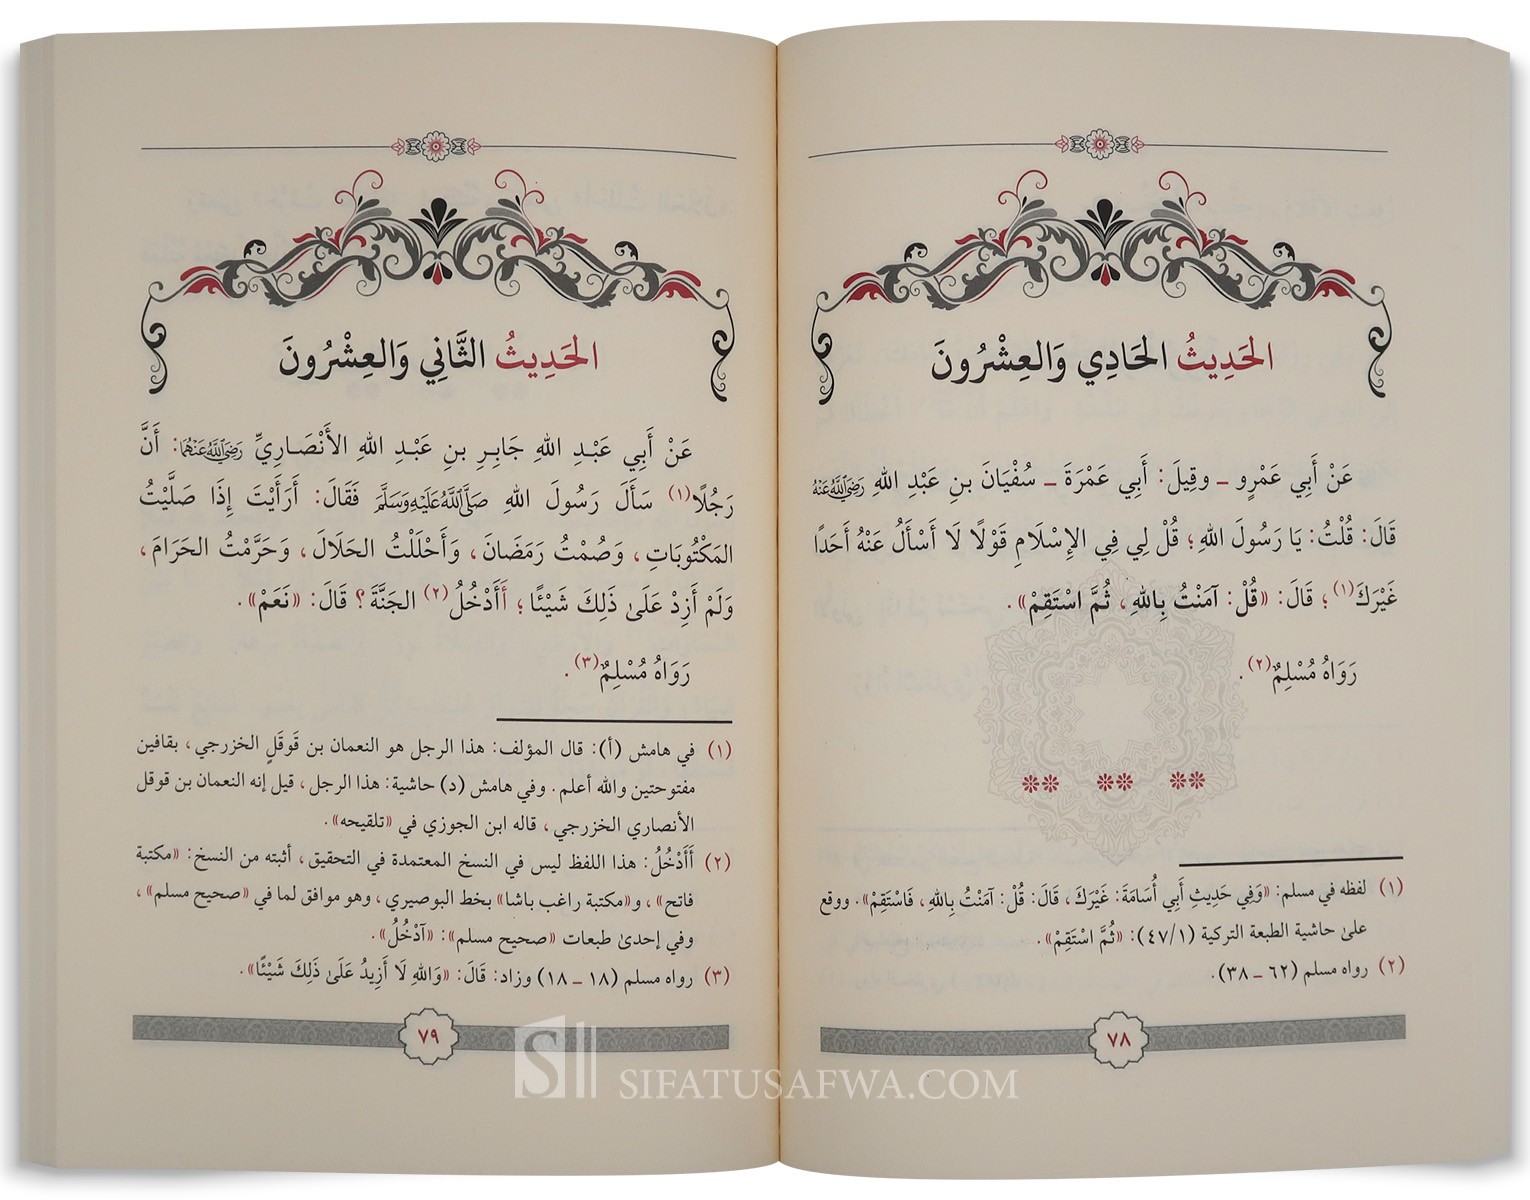 الحَدِيثُ الحَادِي وَالعِشْرُونَ
عَنْ أَبِي عَمْرٍو ـ وقِيلَ: أَبِي عَمْرَةَ ـ سُفْيَانَ بنِ عَبْدِ اللهِ رَضِيَ اللَّهُ عَنْهُ
قَالَ: قُلْتُ: يَا رَسُولَ اللهِ؛ قُلْ لِي فِي الإِسْلَامِ قَوْلًا لَا أَسْأَلُ عَنْهُ أَحَدًا
غَيْرَكَ(١)؛ قَالَ: «قُلْ: آمَنْتُ بِاللهِ، ثُمَّ اسْتَقِمْ».
رَوَاهُ مُسْلِمٌ(٢).
(١) لفظه في مسلم: «وَفِي حَدِيثِ أَبِي أُسَامَةَ: غَيْرَكَ، قَالَ: قُلْ: آمَنْتُ بِاللهِ، فَاسْتَقِمْ». ووقع
علىٰ حاشية الطبعة التركية (٤٧/١): «ثُمَّ اسْتَقِمْ».
(٢) رواه مسلم (٦٢ ـ ٣٨).
٧٨
الحَدِيثُ الثَّانِي وَالعِشْرُونَ
عَنْ أَبِي عَبْدِ اللهِ جَابِرِ بنِ عَبْدِ اللهِ الأَنْصَارِيِّ رَضِيَ اللَّهُ عَنْهُمَا: أَنَّ
رَجُلًا(١) سَأَلَ رَسُولَ اللهِ صَلَّى اللَّهُ عَلَيْهِ وَسَلَّمَ فَقَالَ: أَرَأَيْتَ إِذَا صَلَّيْتُ
المَكْتُوبَاتِ، وَصُمْتُ رَمَضَانَ، وَأَحْلَلْتُ الحَلَالَ، وَحَرَّمْتُ الحَرَامَ،
وَلَمْ أَزِدْ عَلَىٰ ذَلِكَ شَيْئًا؛ أَأَدْخُلُ(٢) الجَنَّةَ؟ قَالَ: «نَعَمْ».
رَوَاهُ مُسْلِمٌ(٣).
(١) في هامش (أ): قال المؤلف: هذا الرجل هو النعمان بن قَوقَلٍ الخزرجي، بقافين
مفتوحتين والله أعلم. وفي هامش (د) حاشية: هذا الرجل، قيل إنه النعمان بن قوقل
الأنصاري الخزرجي، قاله ابن الجوزي في «تلقيحه».
(٢) أَأَدْخُلُ: هذا اللفظ ليس في النسخ المعتمدة في التحقيق، أثبته من النسخ: «مكتبة
فاتح»، و«مكتبة راغب باشا» بخط البوصيري، وهو موافق لما في «صحيح مسلم»،
وفي إحدىٰ طبعات «صحيح مسلم»: «آدْخُلُ».
(٣) رواه مسلم (١٨ ـ ١٨) وزاد: قَالَ: «وَاللهِ لَا أَزِيدُ عَلَىٰ ذَلِكَ شَيْئًا».
٧٩
SIFATUSAFWA.COM